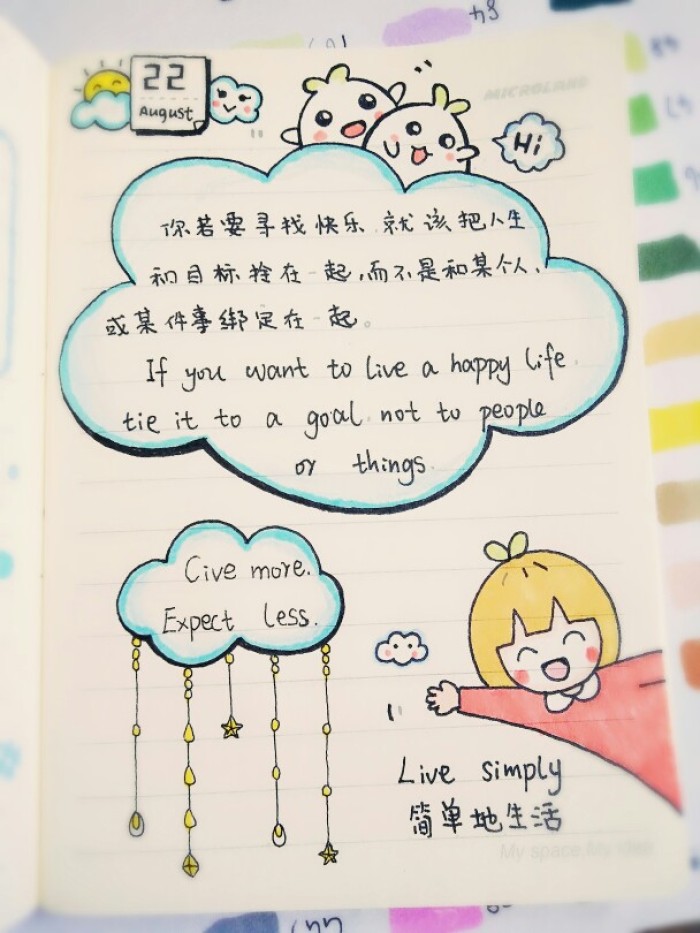 22
August
MICROLAND
Hi
你若要寻找快乐,就该把人生
和目标拴在一起,而不是和某个人、
或某件事绑定在一起。
If you want to live a happy life.
tie it to a goal. not to people
or things.
Cive more.
Expect less.
Live simply
简单地生活
My space My idea